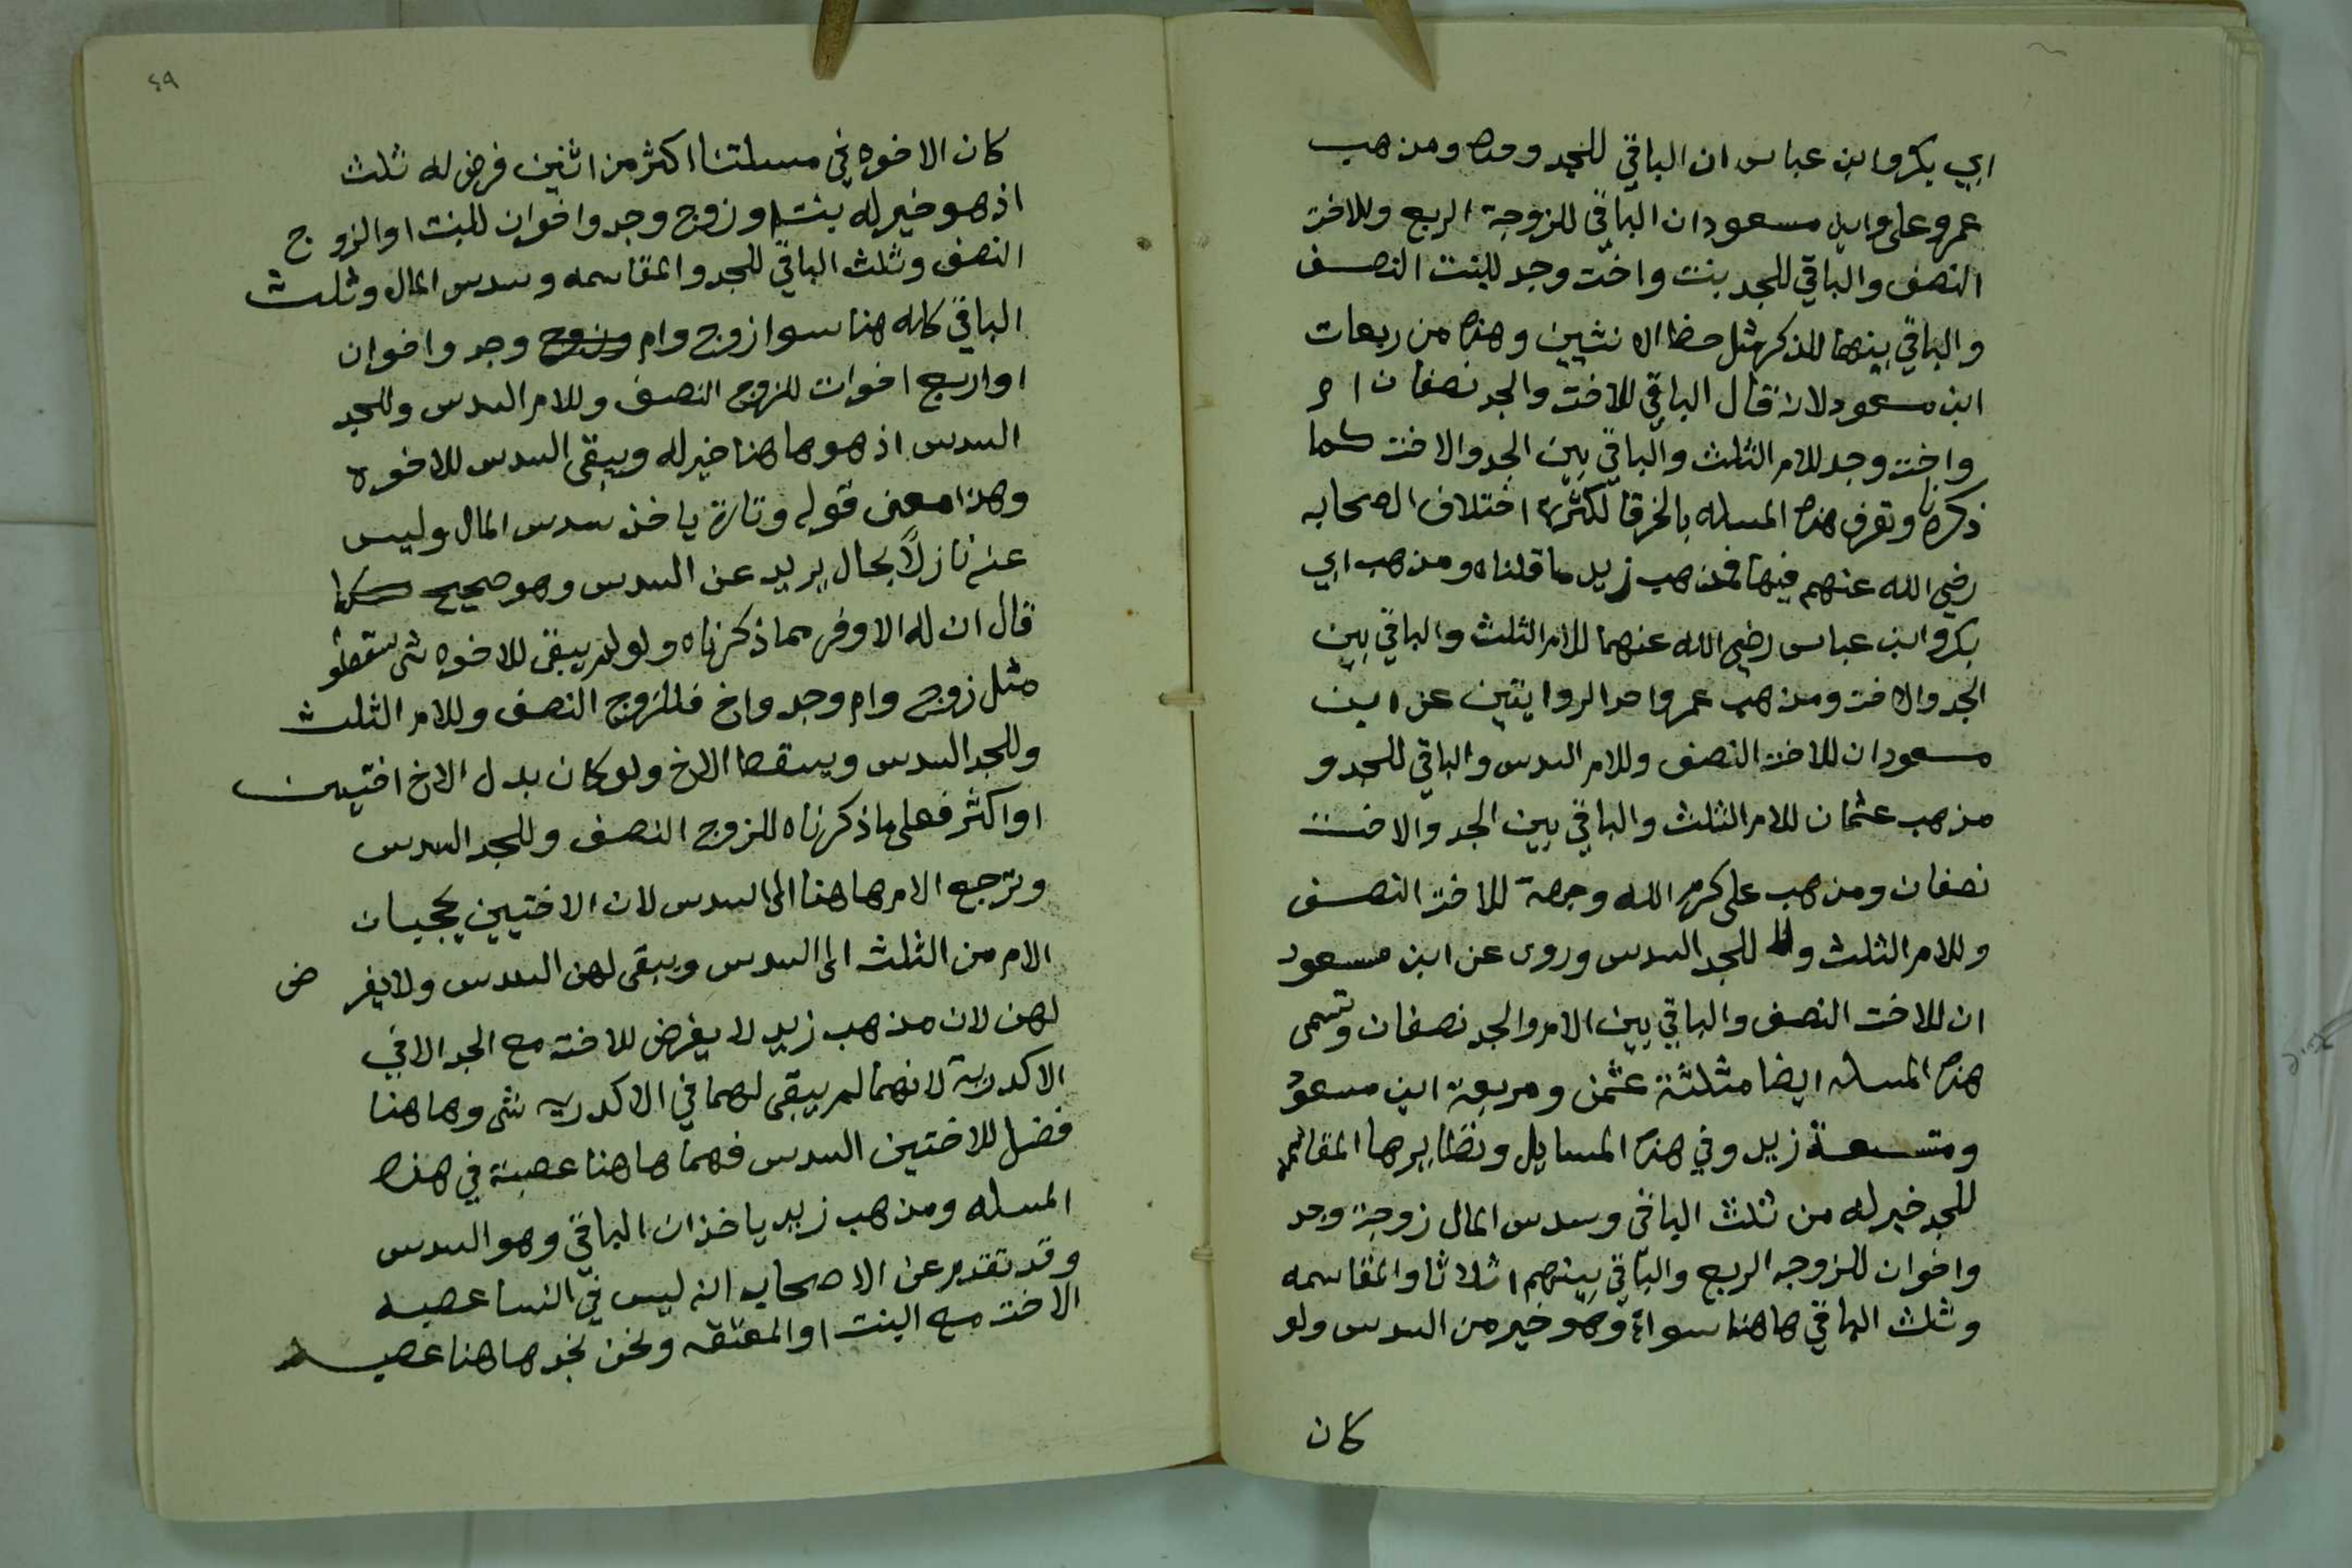 ابي بكر وابن عباس ان الباقي للجد وحده ومذهب
عمر وعلي وابن مسعود ان الباقي للزوجة الربع وللاخت
النصف والباقي للجد بنت واخت وجد للبنت النصف
والباقي بينهما للذكر مثل حظ الانثيين وهذه من ربعات
ابن مسعود لانه قال الباقي للاخت والجد نصفان ام
واخت وجد للام الثلث والباقي بين الجد والاخت كما
ذكرنا وتعرف هذه المسله بالخرقا لكثرة اختلاف الصحابه
رضي الله عنهم فيها فمذهب زيد ما قلناه ومذهب ابي
بكر وابن عباس رضي الله عنهما للام الثلث والباقي بين
الجد والاخت ومذهب عمر واحد الروايتين عن ابن
مسعود ان للاخت النصف وللام السدس والباقي للجد و
مذهب عثمان للام الثلث والباقي بين الجد والاخت
نصفان ومذهب علي كرم الله وجهه للاخت النصف
وللام الثلث وللجد السدس وروى عن ابن مسعود
ان للاخت النصف والباقي بين الام والجد نصفان وتسمى
هذه المسله ايضا مثلثة عثمن ومربعة ابن مسعود
ومتسعة زيد وفي هذه المسايل ونظايرها المقاسمه
للجد خير له من ثلث الباقي وسدس المال زوجة وجد
واخوان للزوجه الربع والباقي بينهم اثلاثا والمقاسمه
وثلث الباقي هاهنا سواء وهو خير من السدس ولو
كان
٤٩
كان الاخوه في مسلتنا اكثر من اثنين فرض له ثلث
اذ هو خير له بنت او زوج وجد واخوان للبنت او الزوج
النصف وثلث الباقي للجد والمقاسمه وسدس المال وثلث
الباقي كله هنا سوا زوج وام وزوج وجد واخوان
او اربع اخوات للزوج النصف وللام السدس وللجد
السدس اذ هو هاهنا خير له ويبقى السدس للاخوه
وهذا معنى قوله وتارة ياخذ سدس المال وليس
عنه نازلاً بحال يريد عن السدس وهو صحيح كما
قال ان له الاوفر مما ذكرناه ولو لم يبقى للاخوه شي سقطو
مثل زوج وام وجد واخ فللزوج النصف وللام الثلث
وللجد السدس ويسقط الاخ ولو كان بدل الاخ اختين
او اكثر فعلى ما ذكرناه للزوج النصف وللجد السدس
وترجع الام هاهنا الى السدس لان الاختين يحجبان
الام من الثلث الى السدس ويبقى لهن السدس ولا يفرض
لهن لان مذهب زيد لا يفرض للاخت مع الجد الا في
الاكدرية لانهما لم يبقى لهما في الاكدريه شي وهاهنا
فضل للاختين السدس فهما هاهنا عصبة في هذه
المسله ومذهب زيد ياخذان الباقي وهو السدس
وقد تقدم عن الاصحاب انه ليس في النسا عصبه الا
الاخت مع البنت او المعتقه ونحن نجد هاهنا عصبه